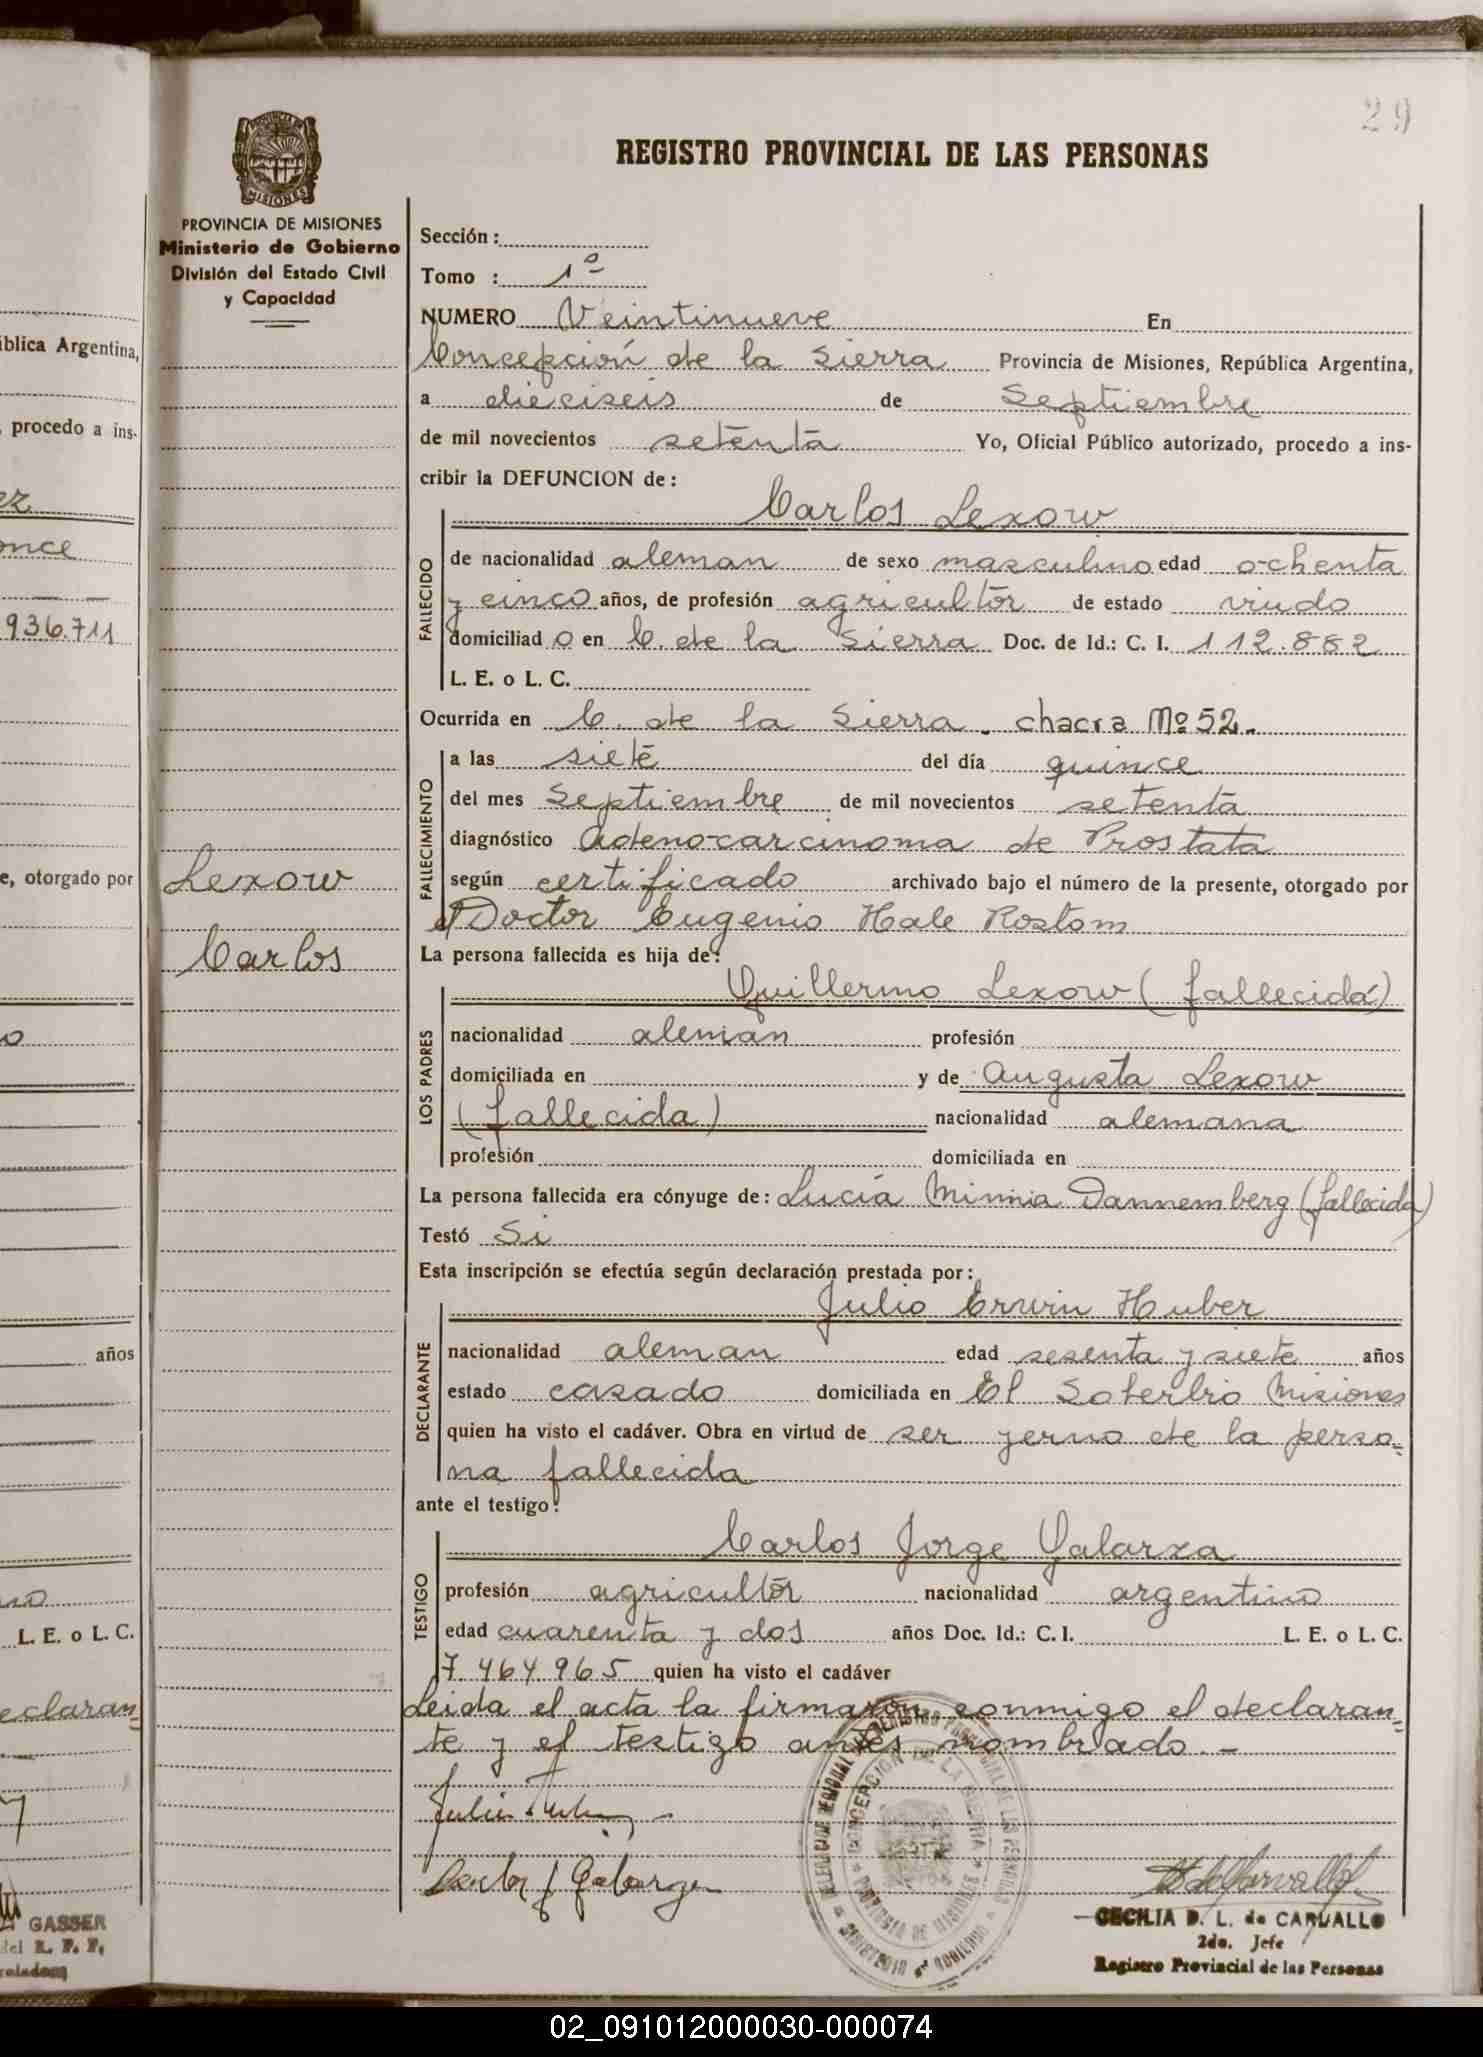 29
REGISTRO PROVINCIAL DE LAS PERSONAS
PROVINCIA DE MISIONES
Ministerio de Gobierno
División del Estado Civil
y Capacidad
Sección :
Tomo : 1º
NUMERO Veintinueve En
Concepción de la Sierra Provincia de Misiones, República Argentina,
a dieciseis de Septiembre
de mil novecientos setenta Yo, Oficial Público autorizado, procedo a ins-
cribir la DEFUNCION de :
Carlos Lexow
FALLECIDO
de nacionalidad aleman de sexo masculino edad ochenta
y cinco años, de profesión agricultor de estado viudo
domiciliad o en C. de la Sierra Doc. de Id.: C. I. 112.882
L. E. o L. C.
Ocurrida en C. de la Sierra. chacra Nº 52.
FALLECIMIENTO
a las siete del día quince
del mes Septiembre de mil novecientos setenta
diagnóstico Adenocarcinoma de Prostata
según certificado archivado bajo el número de la presente, otorgado por
el Doctor Eugenio Hale Rostom
Lexow
Carlos
La persona fallecida es hija de :
Guillermo Lexow (fallecida)
LOS PADRES
nacionalidad aleman profesión
domiciliada en y de Augusta Lexow
(fallecida) nacionalidad alemana
profesión domiciliada en
La persona fallecida era cónyuge de : Lucía Minnia Dannemberg (fallecida)
Testó Si
Esta inscripción se efectúa según declaración prestada por :
Julio Erwin Huber
DECLARANTE
nacionalidad aleman edad sesenta y siete años
estado casado domiciliada en El Soberbio Misiones
quien ha visto el cadáver. Obra en virtud de ser yerno de la perso=
na fallecida
ante el testigo :
Carlos Jorge Galarza
TESTIGO
profesión agricultor nacionalidad argentino
edad cuarenta y dos años Doc. Id.: C. I. L. E. o L. C.
7.464.965 quien ha visto el cadáver
Leida el acta la firmaron conmigo el declaran=
te y el testigo antes nombrado. -
CECILIA D. L. de CARVALLO
2do. Jefe
Registro Provincial de las Personas
iblica Argentina,
, procedo a ins-
ez
once
936.711
e, otorgado por
años
L. E. o L. C.
eclaran=
GASSER
del R. P. P.
02_091012000030-000074